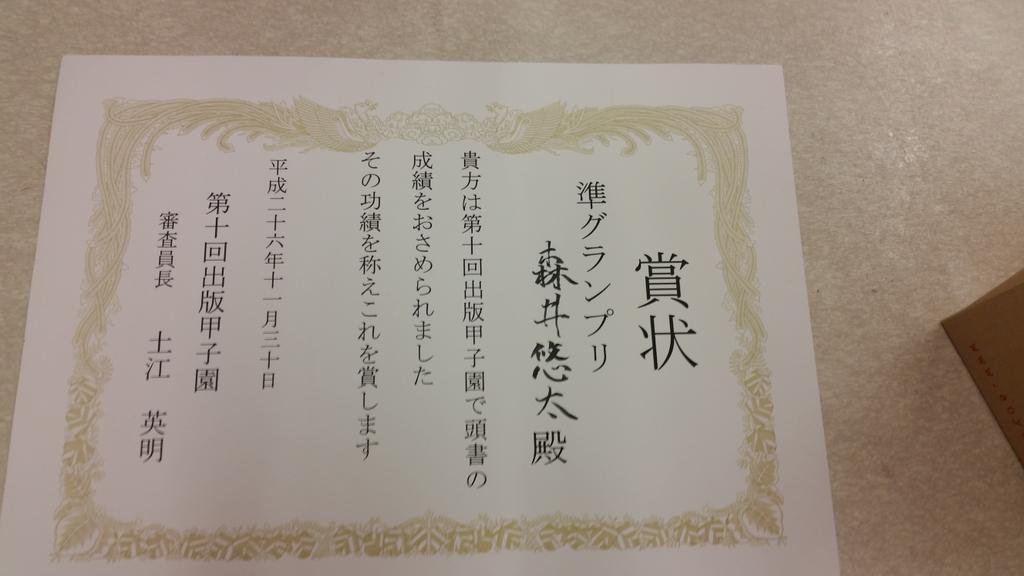 賞状
準グランプリ
森井悠太殿
貴方は第十回出版甲子園で頭書の
成績をおさめられました
その功績を称えこれを賞します
平成二十六年十一月三十日
第十回出版甲子園
審査員長 土江 英明